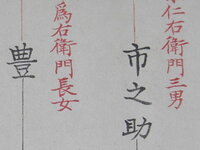 仁右衛門三男
市之助
為右衛門長女
豊